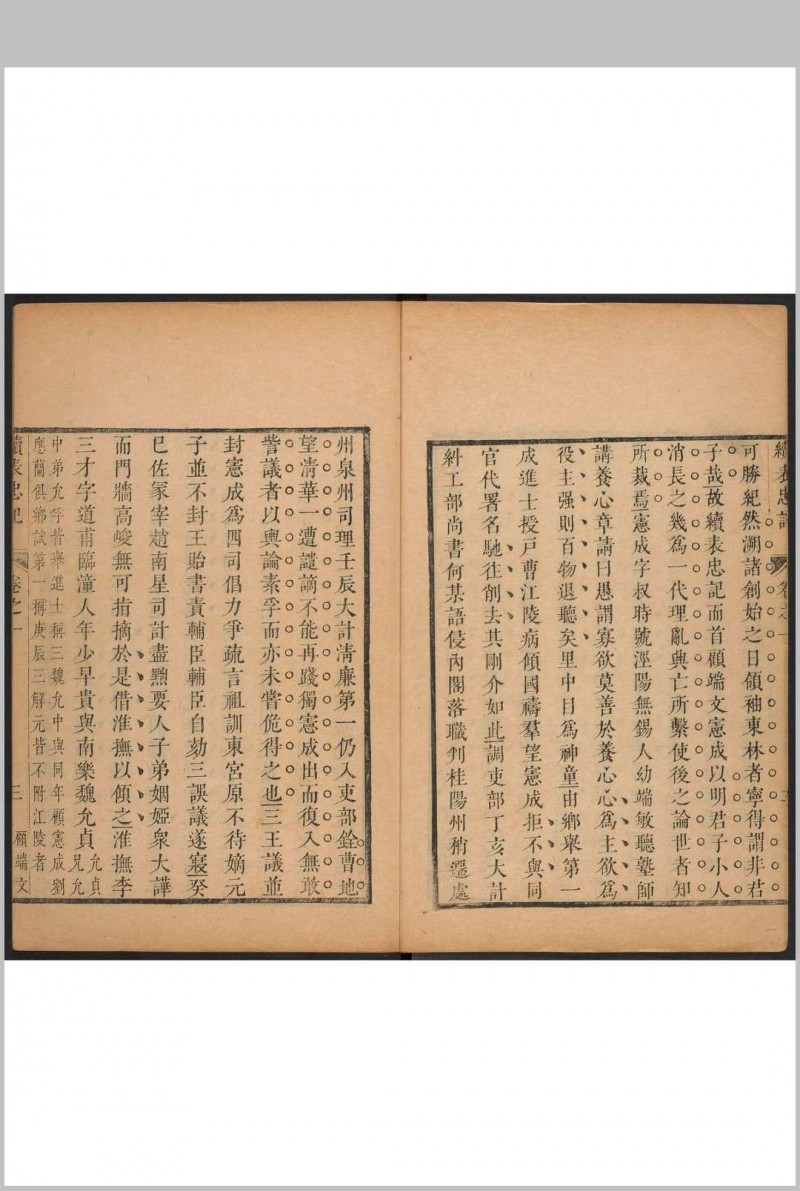 續表忠記
卷之一
可勝紀然溯諸創始之日領袖東林者寧得謂非君
子哉故續表忠記而首顧端文憲成以明君子小人
消長之幾爲一代理亂興亡所繫使後之論世者知
所裁焉憲成字叔時號涇陽無錫人幼端敏聽塾師
講養心章請曰愚謂寡欲莫善於養心心爲主欲爲
役主强則百物退聽矣里中目爲神童由鄉舉第一
成進士授戸曹江陵病傾國禱羣望憲成拒不與同
官代署名馳往削去其剛介如此調吏部丁亥大計
糾工部尚書何某語侵內閣落職判桂陽州稍遷處
州泉州司理壬辰大計淸廉第一仍入吏部銓曹地
望淸華一遭譴謫不能再踐獨憲成出而復入無敢
訾議者以輿論素孚而亦未嘗倖得之也三王議並
封憲成爲四司倡力爭疏言祖訓東宮原不待嫡元
子並不封王貽書責輔臣輔臣自劾三誤議遂寢癸
巳佐冢宰趙南星司計盡黜要人子弟姻婭衆大譁
而門牆高峻無可指摘於是借淮撫以傾之淮撫李
三才字道甫臨潼人年少早貴與南樂魏允貞允貞
兄允
中弟允孚皆舉進士稱三魏允中與同年顧憲成劉
應蘭俱鄉試第一稱庚辰三解元皆不附江陵者
續表忠記
卷之一
三
顧端文